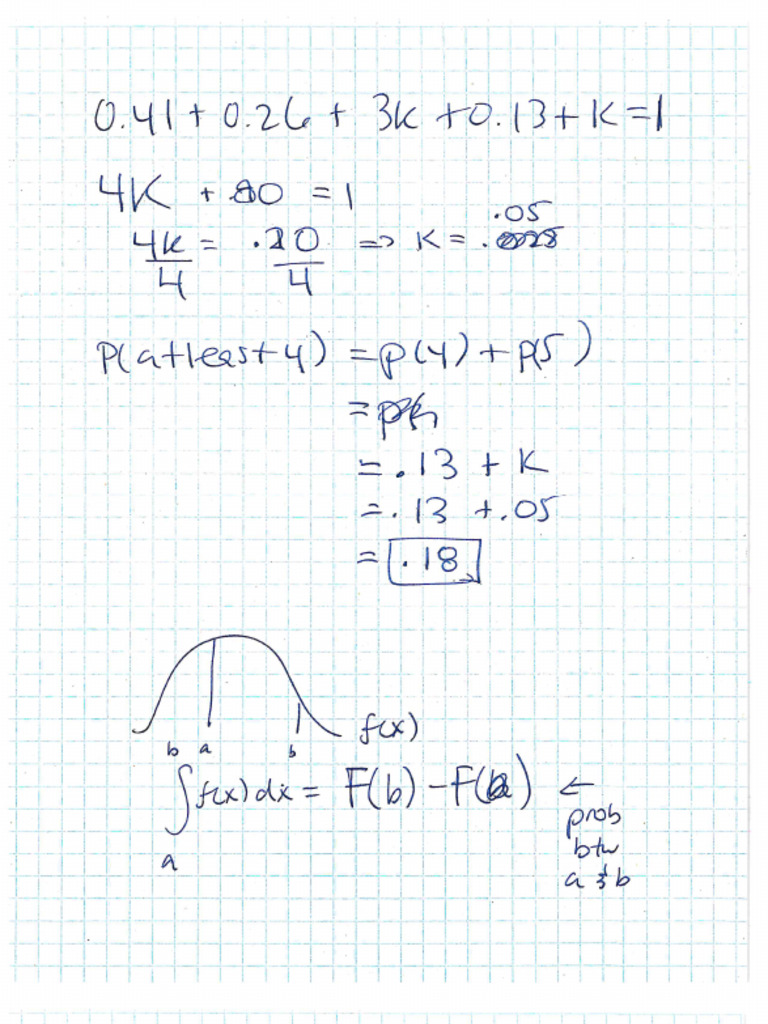 0.41 + 0.26 + 3k + 0.13 + K = 1
4K + 80 = 1
4k/4 = .20/4 => K = .05
P(at least 4) = p(4) + p(5)
= .13 + K
= .13 + .05
= .18
a b f(x)
∫ₐᵇ f(x) dx = F(b) - F(a) ←
prob
btw
a & b